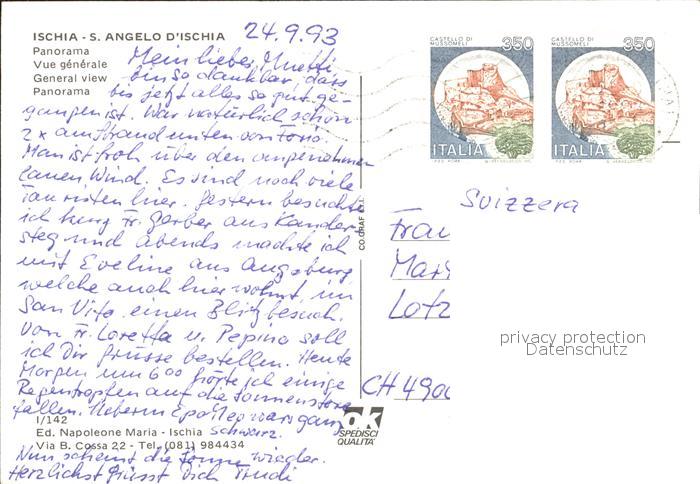 ISCHIA - S. ANGELO D'ISCHIA
24.9.93
Panorama
Vue générale
General view
Panorama
Mein lieber Muetti,
bin so dankbar, dass
bis jetzt alles so gut ge-
gangen ist. War natürlich schon
2x am Strand unten von Forio.
Man ist froh über den angenehmen
lauen Wind. Es sind noch viele
Touristen hier. Gestern besuchte
ich kurz Fr. Gerber aus Kander-
steg und abends machte ich
mit Eveline aus Augsburg
welche auch hier wohnt, im
San Vito einen Blitzbesuch.
Von Fr. Loretta u. Pepino soll
ich Dir Grüsse bestellen. Heute
Morgen um 6⁰⁰ hörte ich einige
Regentropfen auf die Sonnenstore
fallen. Ueberm Epomeo war's ganz
schwarz.
Nun scheint die Sonne wieder.
Herzlichst grüsst Dich Trudi
I/142
Ed. Napoleone Maria - Ischia
Via B. Cossa 22 - Tel. (081) 984434
CO.GRAF
OK
SPEDISCI
QUALITÀ
CASTELLO DI
MUSSOMELI
350
ITALIA
CASTELLO DI
MUSSOMELI
350
ITALIA
Svizzera
Frau
Lotz
CH 4900
privacy protection
Datenschutz